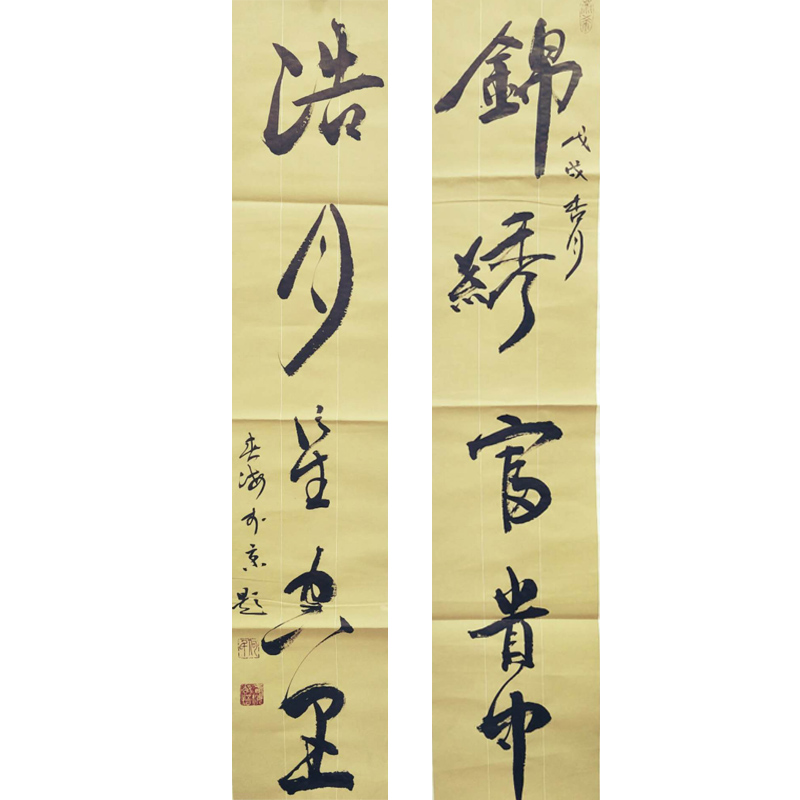 戊戌杏月
錦綉富貴中
浩月星空里
春海於京題